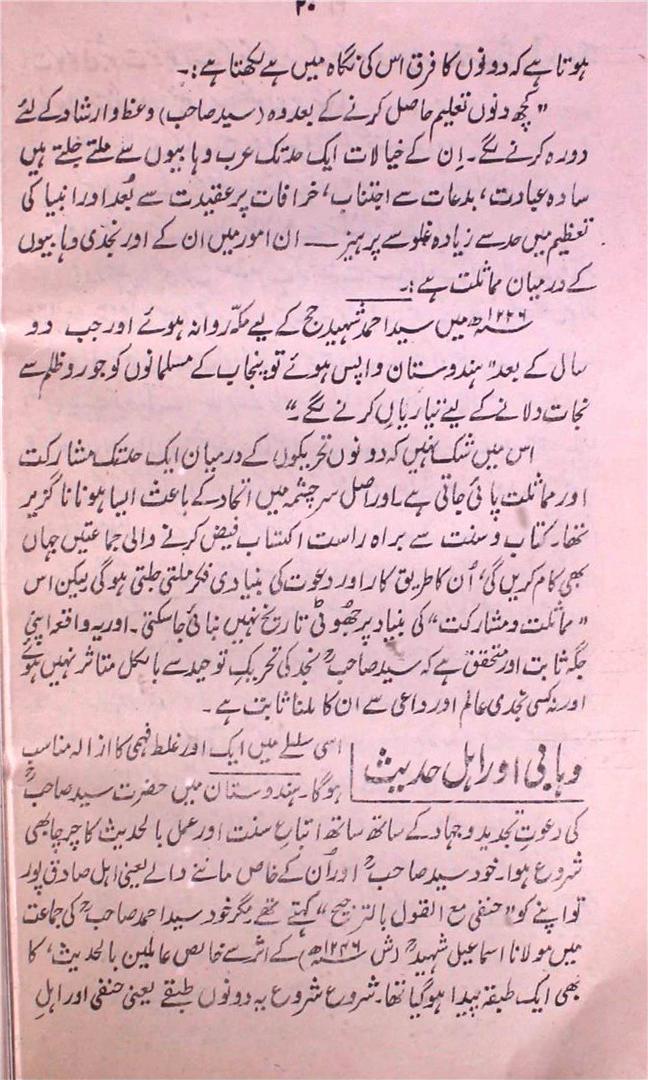 ۲۰
ہوتا ہے کہ دونوں کا فرق اس کی نگاہ میں ہے لکھتا ہے:۔
"کچھ دنوں تعلیم حاصل کرنے کے بعد وہ (سید صاحب) وعظ و ارشاد کے لئے
دورہ کرنے لگے۔ اِن کے خیالات ایک حد تک عرب وہابیوں سے ملتے جلتے ہیں
سادہ عبادت، بدعات سے اجتناب، خرافات پر عقیدت سے بُعد اور انبیا کی
تعظیم میں حد سے زیادہ غلو سے پرہیز — ان امور میں ان کے اور نجدی وہابیوں
کے درمیان مماثلت ہے:۔
۱۲۳۶ھ میں سید احمد شہید حج کے لیے مکہ روانہ ہوئے اور جب دو
سال کے بعد" ہندوستان واپس ہوئے تو پنجاب کے مسلمانوں کو جور و ظلم سے
نجات دلانے کے لیے تیاریاں کرنے لگے۔"
اس میں شک نہیں کہ دونوں تحریکوں کے درمیان ایک حد تک مشارکت
اور مماثلت پائی جاتی ہے۔ اور اصل سرچشمہ میں اتحاد کے باعث ایسا ہونا ناگزیر
تھا۔ کتاب و سنت سے براہ راست اکتساب فیض کرنے والی جماعتیں جہاں
بھی کام کریں گی، اُن کا طریق کار اور دعوت کی بنیادی فکر ملتی جلتی ہوگی لیکن اس
"مماثلت و مشارکت" کی بنیاد پر جھوٹی تاریخ نہیں بنائی جاسکتی۔ اور یہ واقعہ اپنی
جگہ ثابت اور متحقق ہے کہ سید صاحبؒ نجد کی تحریکِ توحید سے بالکل متاثر نہیں ہوئے
اور نہ کسی نجدی عالم اور داعی سے ان کا ملنا ثابت ہے۔
وہابی اور اہل حدیث
اسی سلسلے میں ایک اور غلط فہمی کا ازالہ مناسب
ہوگا۔ ہندوستان میں حضرت سید صاحبؒ
کی دعوتِ تجدید و جہاد کے ساتھ ساتھ اتباعِ سنت اور عمل بالحدیث کا چرچا بھی
شروع ہوا۔ خود سید صاحبؒ اور اُن کے خاص ماننے والے یعنی اہل صادق پور
تو اپنے کو "حنفی مع القول بالترجیح" کہتے تھے مگر خود سید احمد صاحبؒ کی جماعت
میں مولانا اسماعیل شہیدؒ (ش ۱۲۴۶ھ) کے اثر سے خالص عاملین بالحدیث، کا
بھی ایک طبقہ پیدا ہوگیا تھا۔ شروع شروع یہ دونوں طبقے یعنی حنفی اور اہلِ